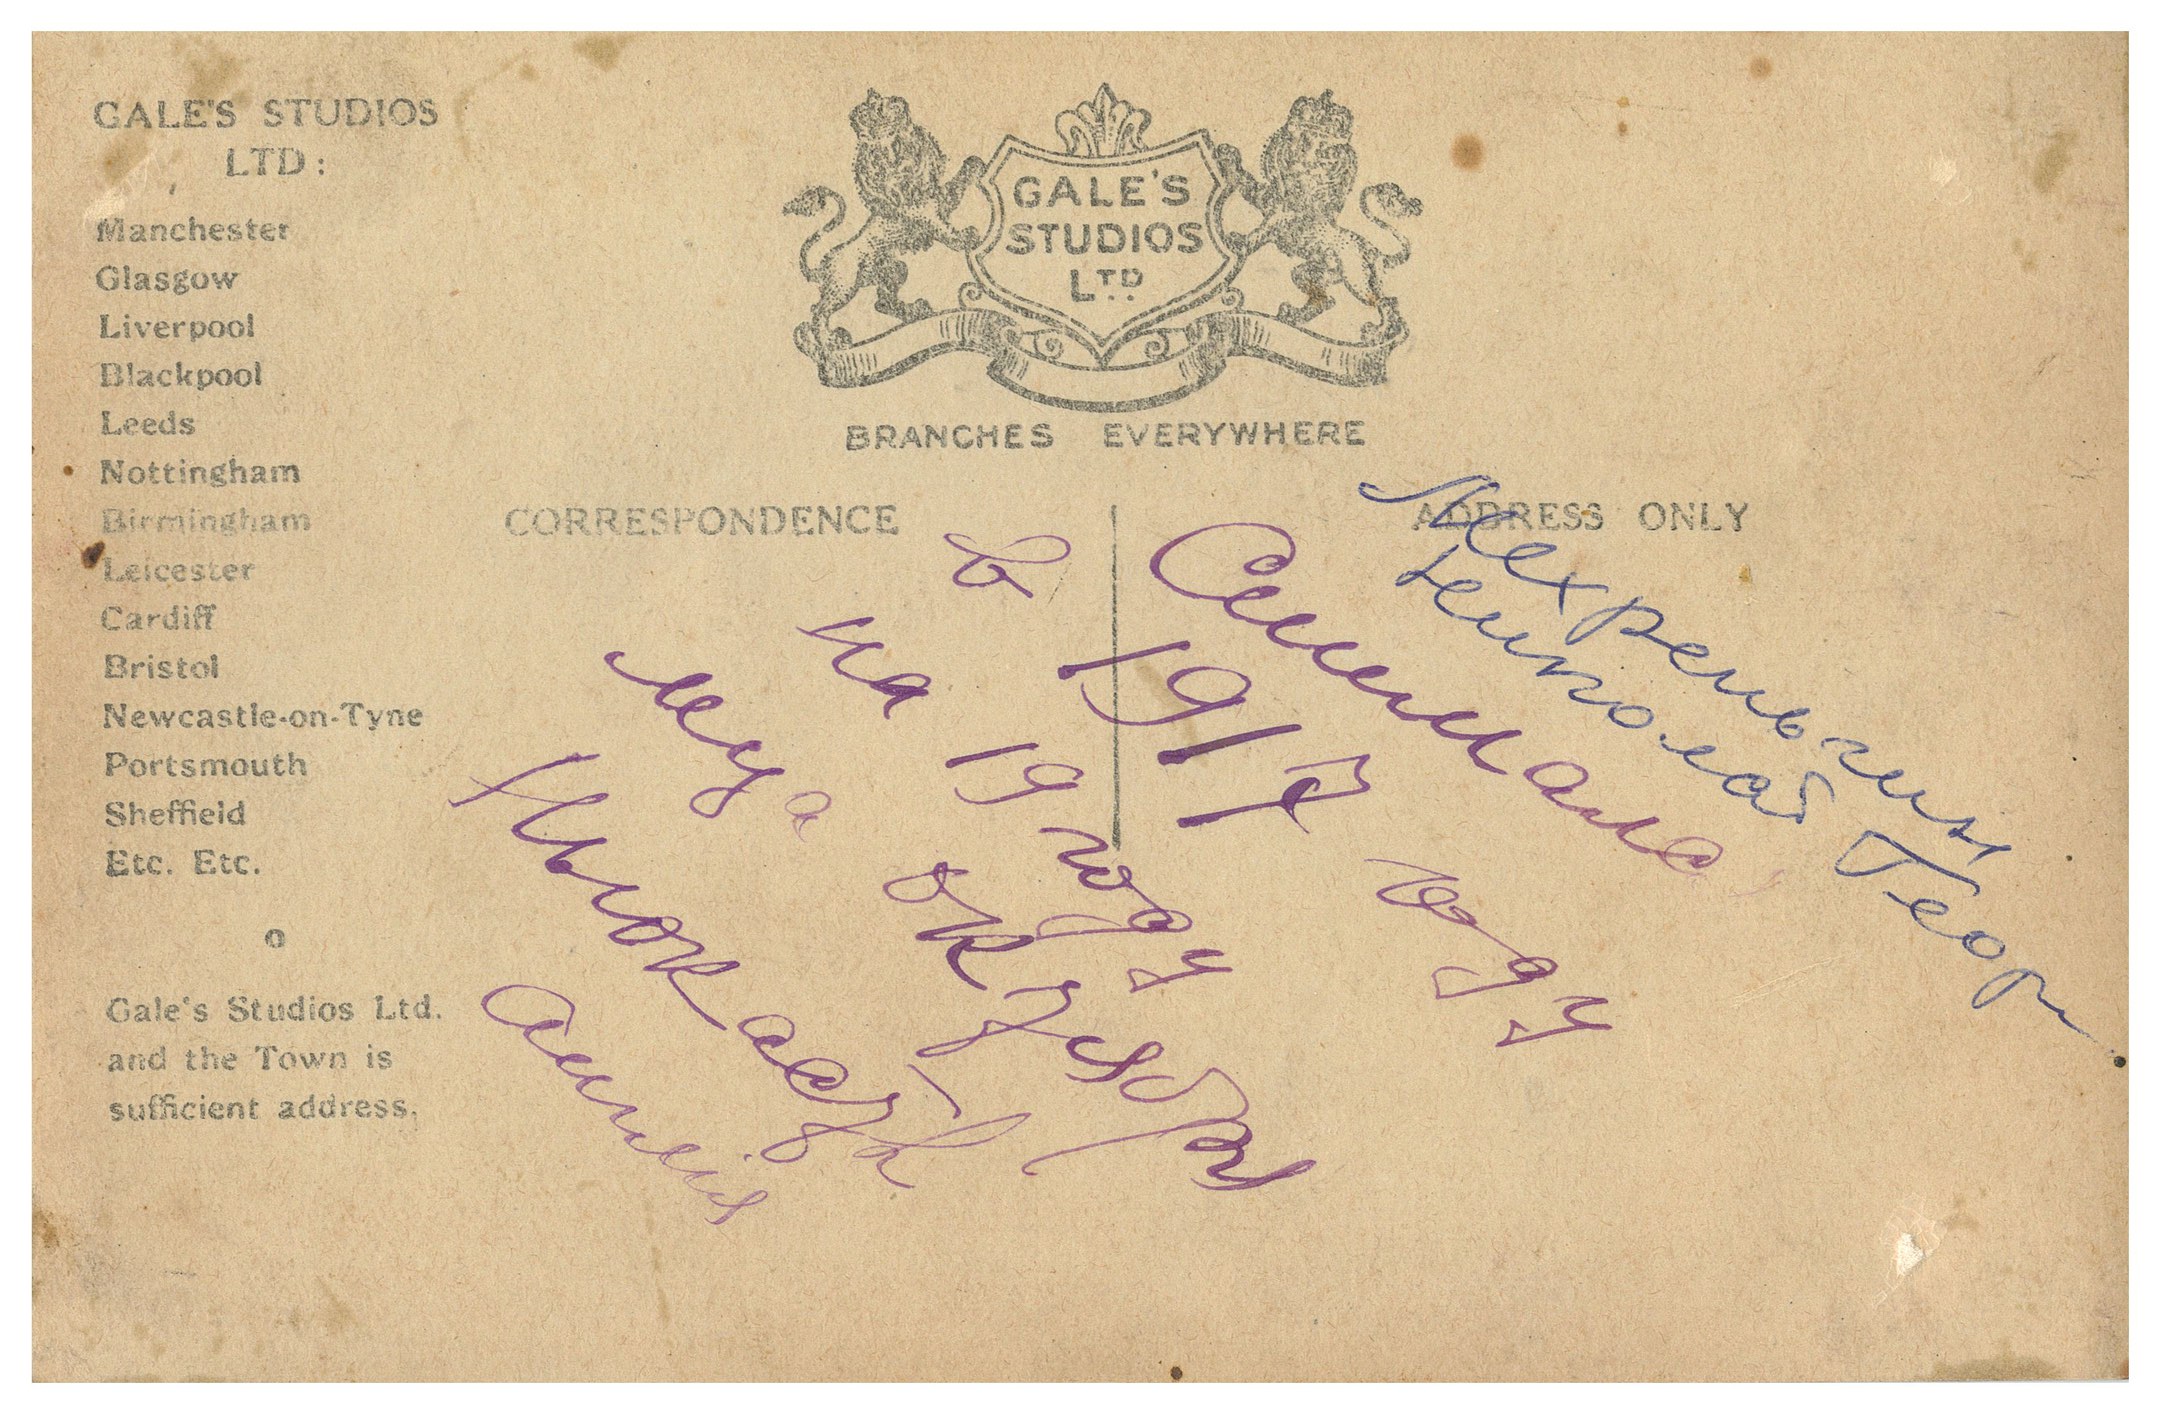 GALE'S STUDIOS
LTD:
Manchester
Glasgow
Liverpool
Blackpool
Leeds
Nottingham
Birmingham
Leicester
Cardiff
Bristol
Newcastle-on-Tyne
Portsmouth
Sheffield
Etc. Etc.
Gale's Studios Ltd.
and the Town is
sufficient address.
GALE'S
STUDIOS
LTD.
BRANCHES EVERYWHERE
CORRESPONDENCE
ADDRESS ONLY
Мехреньгин
Николай Геор
Снимался
в 1917 году
на 19 году
октября
Англия